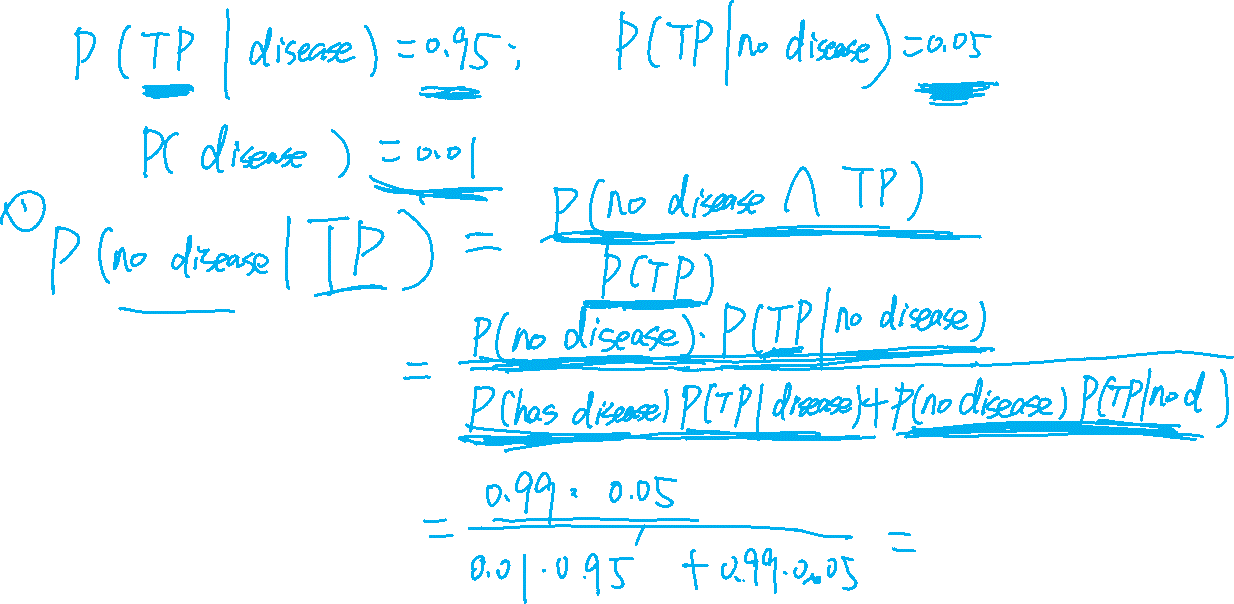 P(TP|disease)=0.95; P(TP|no disease)=0.05
P(disease)=0.01
① P(no disease|TP) = P(no disease ∩ TP)
P(TP)
= P(no disease)·P(TP|no disease)
P(has disease)P(TP|disease)+P(no disease)P(TP|no d)
= 0.99·0.05
0.01·0.95 + 0.99·0.05 =